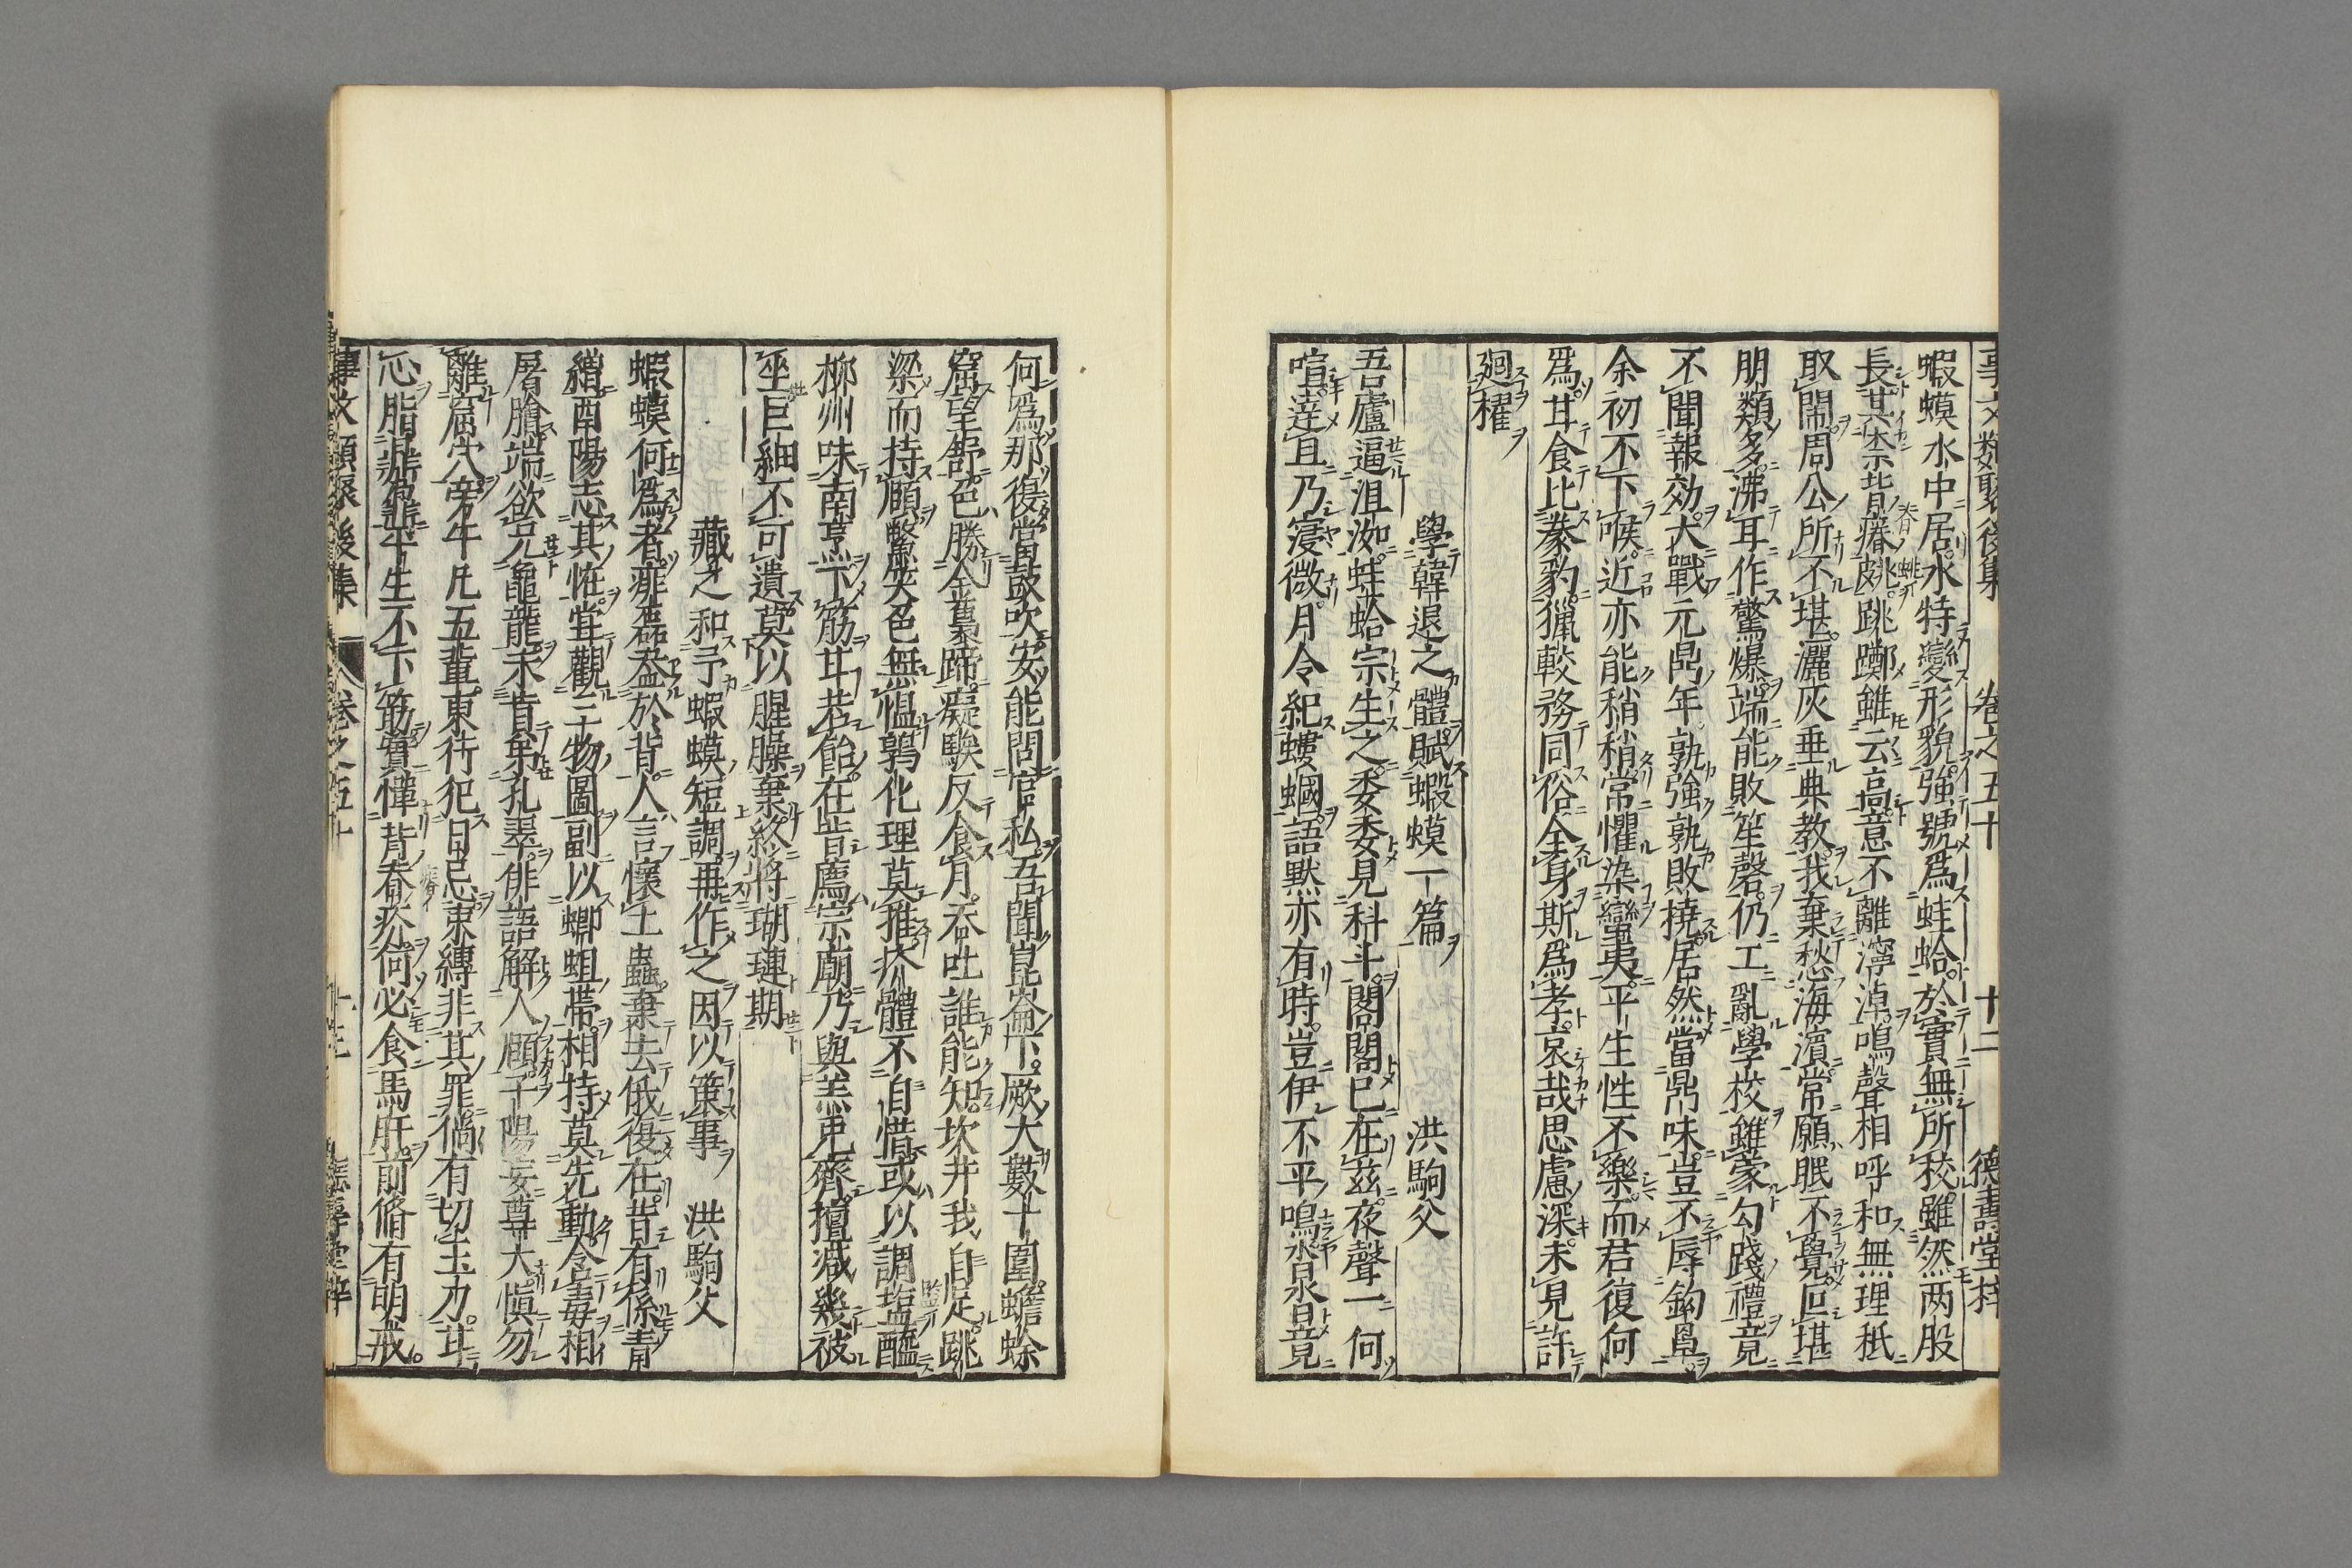 事文類聚後集　卷之五十　十二　德壽堂梓
蝦蟆水中居水特變形貌強號爲蛙蛤於實無所校雖然兩股
長其柰脊皴皰跳躑雖云高意不離濘淖鳴聲相呼和無理秖
取閙周公所不堪灑灰垂典教我棄愁海濱常願眠不覺叵堪
朋類多沸耳作驚爆端能敗笙磬仍工亂學校雖蒙勾踐禮竟
不聞報効大戰元鼎年孰強孰敗橈居然當鼎味豈不辱鈎罩
余初不下喉近亦能稍稍常懼染蠻夷平生性不樂而君復何
爲甘食比豢豹獵較務同俗全身斯爲孝哀哉思慮深未見許
廻櫂
學韓退之體賦蝦蟆一篇　洪駒父
吾廬逼沮洳蛙蛤宗生之委委見科斗閣閣已在茲夜聲一何
喧達且乃寖微月令紀螻蟈語默亦有時豈伊不平鳴衆皆竟
何爲那復當鼓吹安能問官私吾聞崑崙下厥大數十圍蟾蜍
窟望舒色勝金䮍蹄癡騃反食月吞吐誰能知坎井我自足跳
梁而持頤鱉噞色無慍鶉化理莫推疥體不自惜或以調塩醯
柳州味南烹下筋甘若飴在昔薦宗廟乃與羔兔齊擅減幾被
坐巨細不可遺莫以腥臊棄終將瑚璉期
藏之和予蝦蟆短調再作之因以策事　洪駒父
蝦蟆何爲者痱磊盈於背人言懷土蟲棄去俄復在昔有係青
繒酉陽志其恠甞觀三物圖副以蝍蛆帶相持莫先動令毒相
屠膾端欲兄龜龍未肯弟孔翠俳語解人頤子陽妄尊大愼勿
離窟穴旁午凡五輩東行犯日忌束縛非其罪倘有切玉刀耳
忘脂澀莾平生不下筋實憚背眷疥何必食馬肝前脩有明戒
事文類聚後集　卷之五十　十三　德壽堂梓